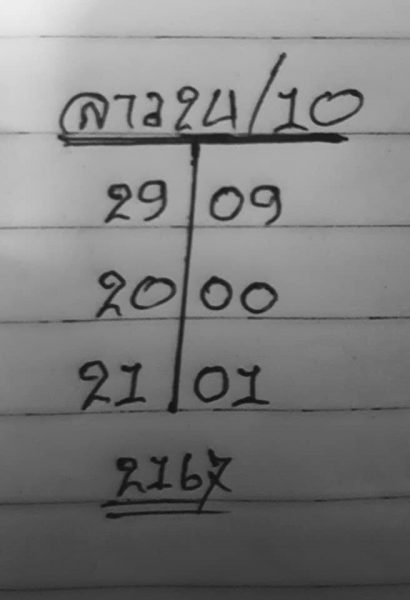 ลาว24/10
29 09
20 00
21 01
2167